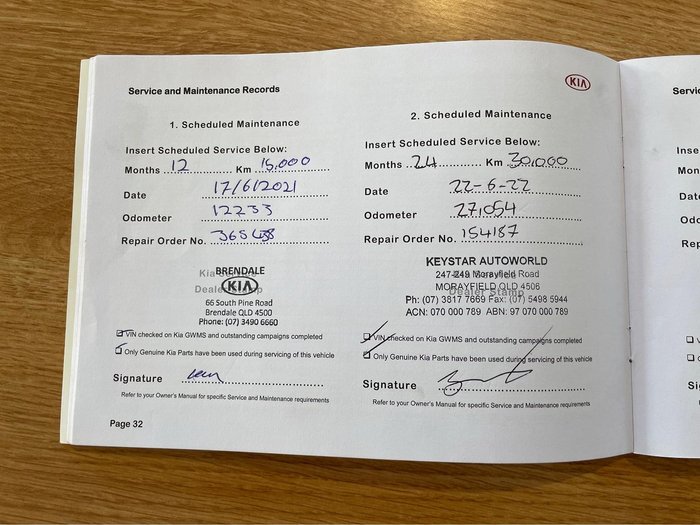 Service and Maintenance Records
1. Scheduled Maintenance
Insert Scheduled Service Below:
Months 12 Km 15,000
Date 17/6/2021
Odometer 12233
Repair Order No.
BRENDALE
KIA
Dealer Stamp
66 South Pine Road
Brendale QLD 4500
Phone: (07) 3490 6660
VIN checked on Kia GWMS and outstanding campaigns completed
Only Genuine Kia Parts have been used during servicing of this vehicle
Signature
Refer to your Owner's Manual for specific Service and Maintenance requirements
Page 32
KIA
2. Scheduled Maintenance
Insert Scheduled Service Below:
Months 24 Km 30,000
Date 22-6-22
Odometer 27,054
Repair Order No. 154187
KEYSTAR AUTOWORLD
247-249 Morayfield Road
MORAYFIELD QLD 4506
Dealer Stamp
Ph: (07) 3817 7669 Fax: (07) 5498 5944
ACN: 070 000 789 ABN: 97 070 000 789
VIN checked on Kia GWMS and outstanding campaigns completed
Only Genuine Kia Parts have been used during servicing of this vehicle
Signature
Refer to your Owner's Manual for specific Service and Maintenance requirements